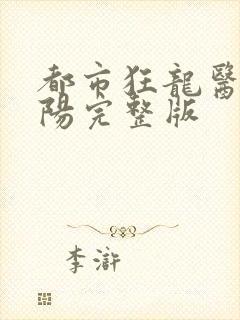 都市狂龍醫
陽完整版
李滸